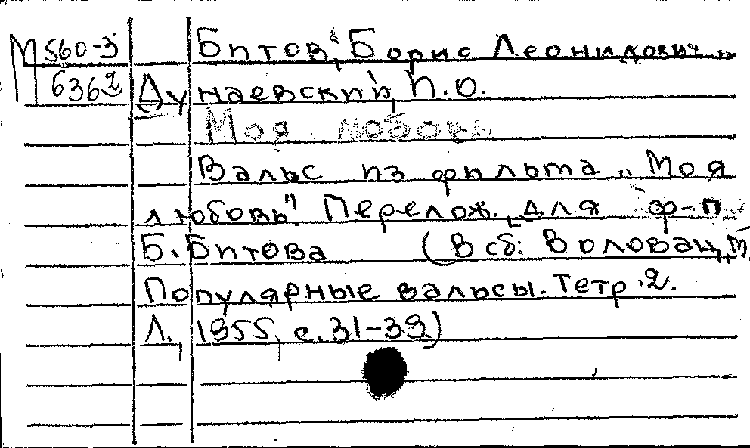 М 560-3 Битов, Борис Леонидович
6362 Дунаевский, И.О.
Моя любовь
Вальс из фильма „Моя
любовь" Перелож. для ф-п.
Б. Битова (В сб: Воловац, М.
Популярные вальсы. Тетр. 2.
Л., 1955, с. 31-39)